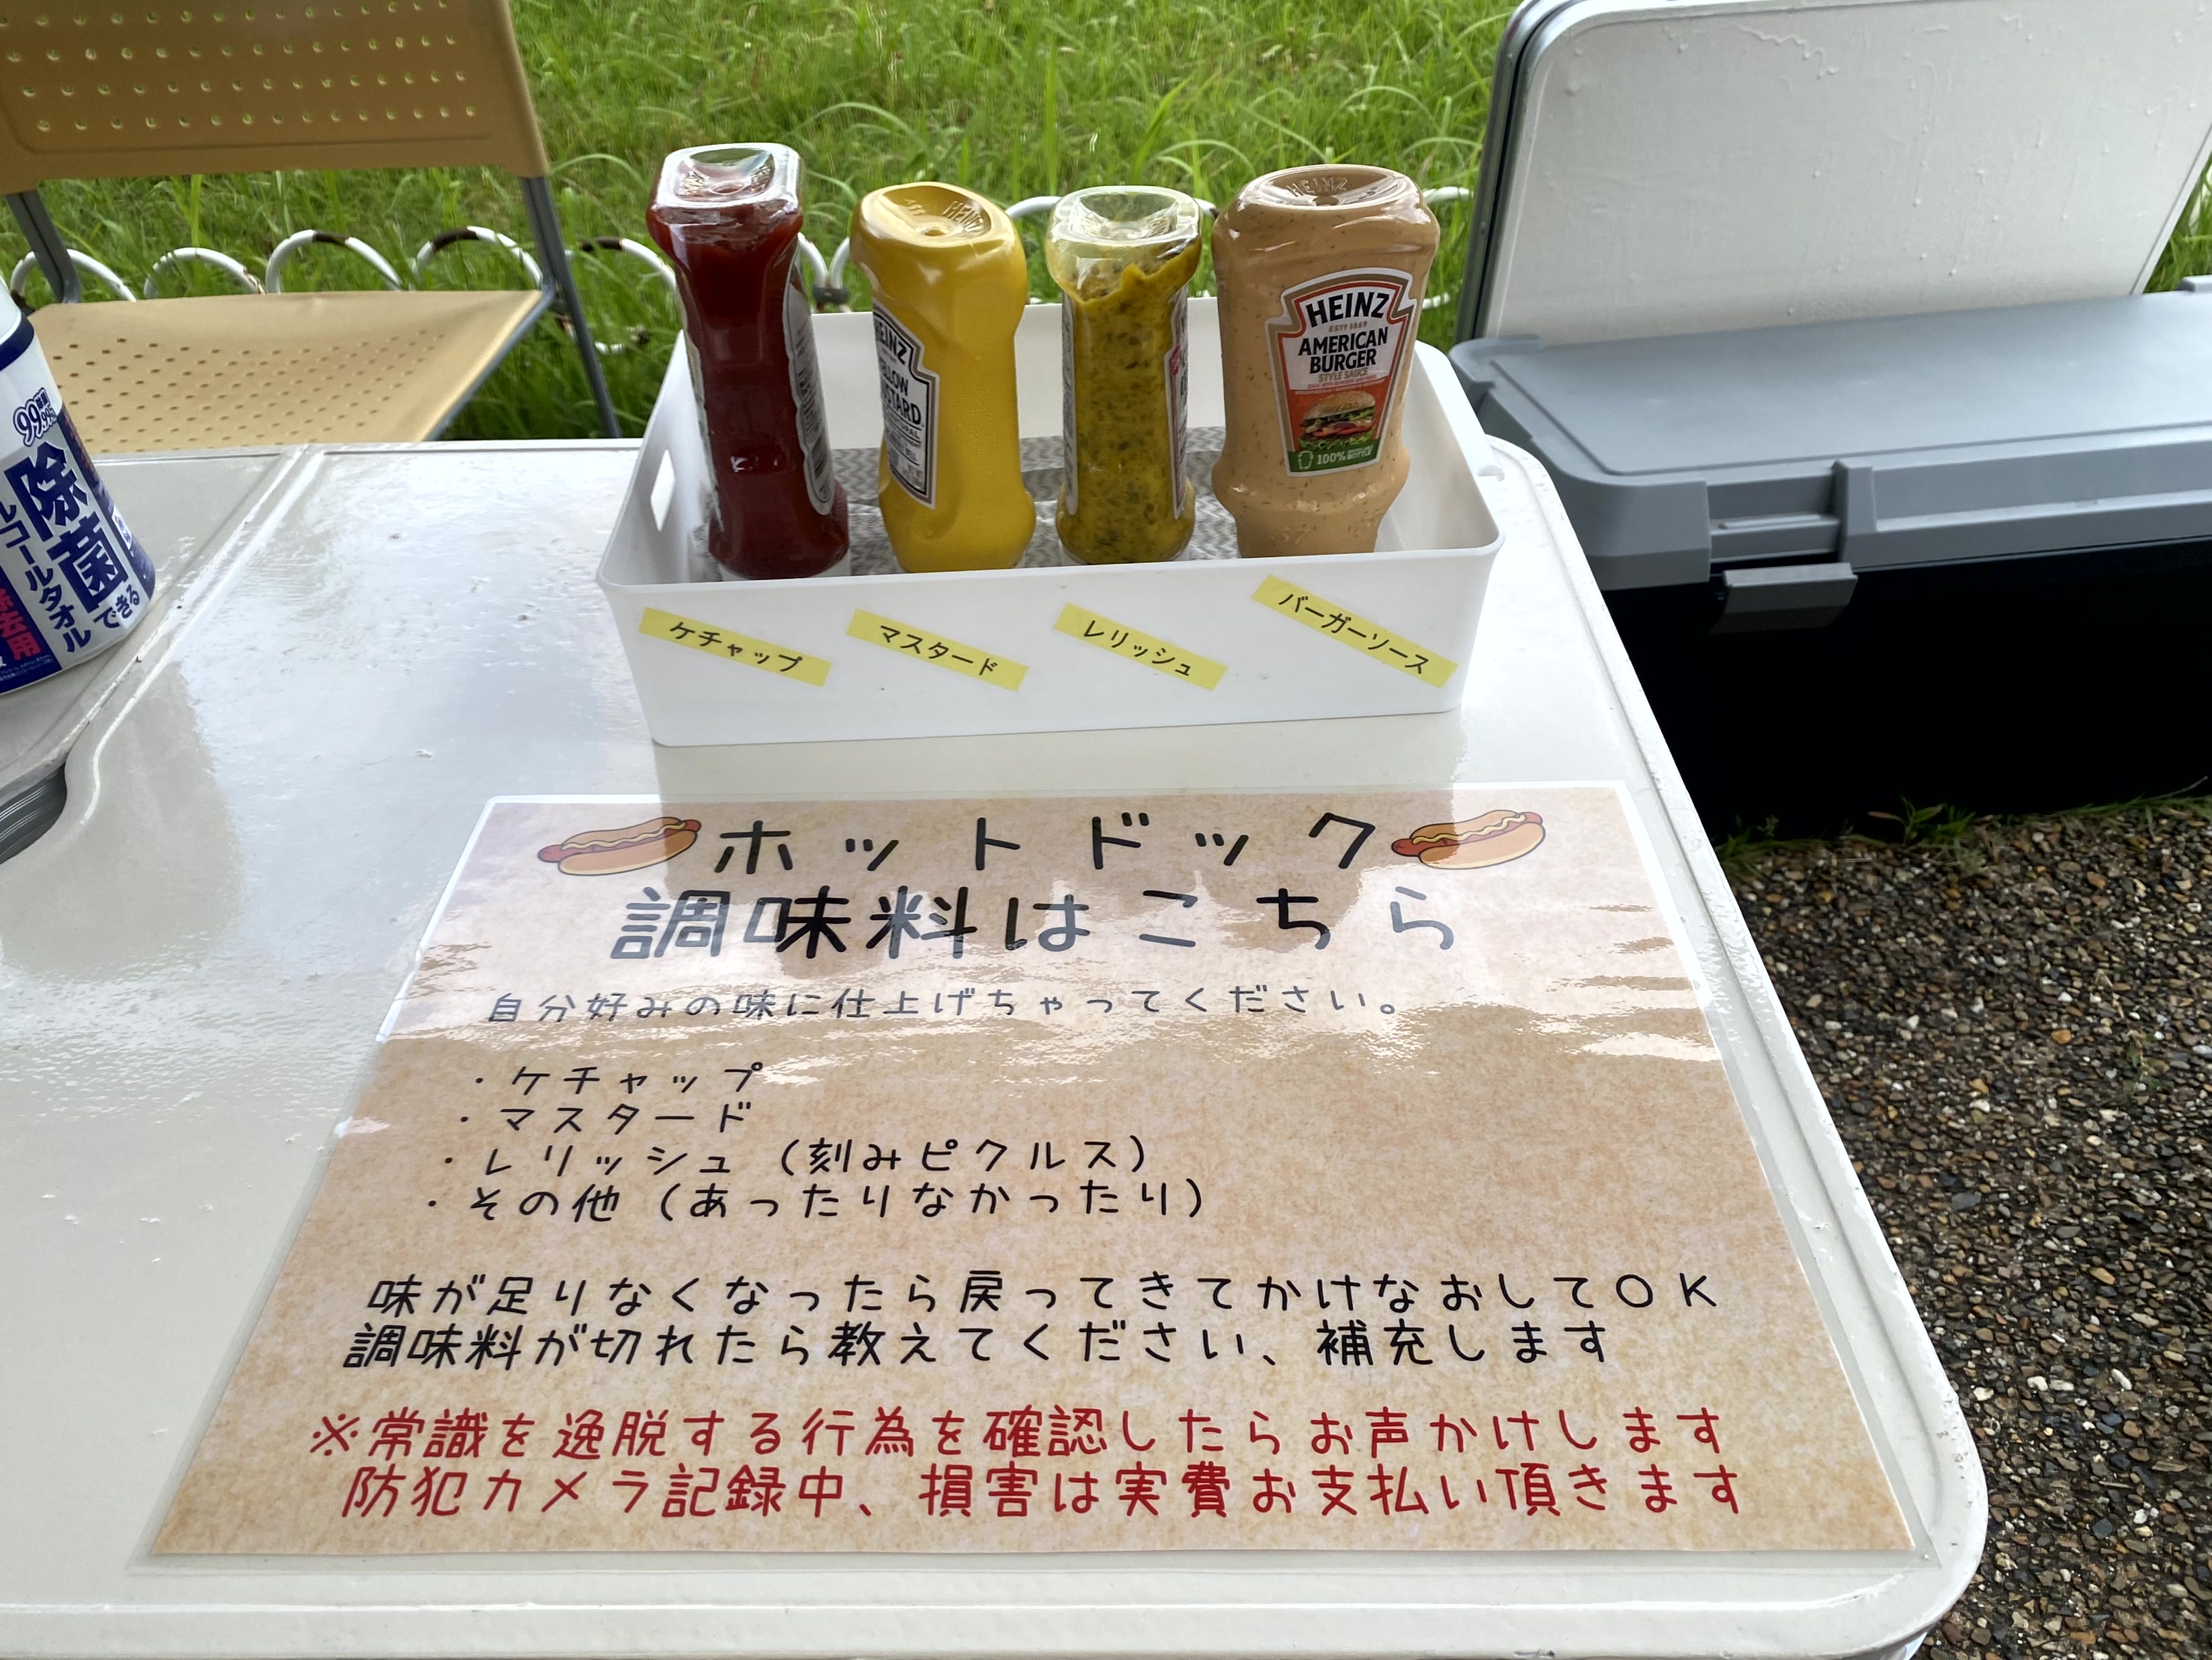 99.99%
除菌できる
アルコールタオル
除去用
HEINZ
HEINZ
YELLOW
MUSTARD
HEINZ
HEINZ
ESTD 1869
AMERICAN
BURGER
STYLE SAUCE
100%
ケチャップ
マスタード
レリッシュ
バーガーソース
ホットドック
調味料はこちら
自分好みの味に仕上げちゃってください。
・ケチャップ
・マスタード
・レリッシュ（刻みピクルス）
・その他（あったりなかったり）
味が足りなくなったら戻ってきてかけなおしてＯＫ
調味料が切れたら教えてください、補充します
※常識を逸脱する行為を確認したらお声かけします
防犯カメラ記録中、損害は実費お支払い頂きます